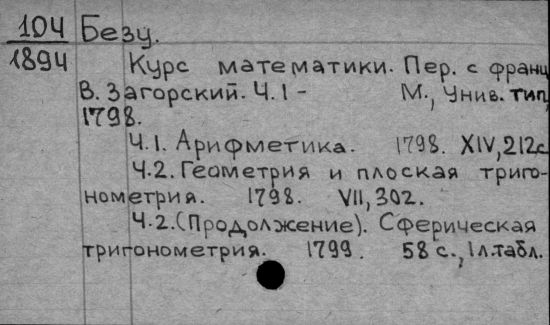 104 Безу.
1894 Курс математики. Пер. с франц
В. Загорский. Ч. I - М., Унив. тип,
1798.
Ч. I. Арифметика. 1798. XIV, 212с.
Ч. 2. Геометрия и плоская триго-
нометрия. 1798. VII, 302.
Ч. 2. (Продолжение). Сферическая
тригонометрия. 1799. 58 с., 1 л. табл.